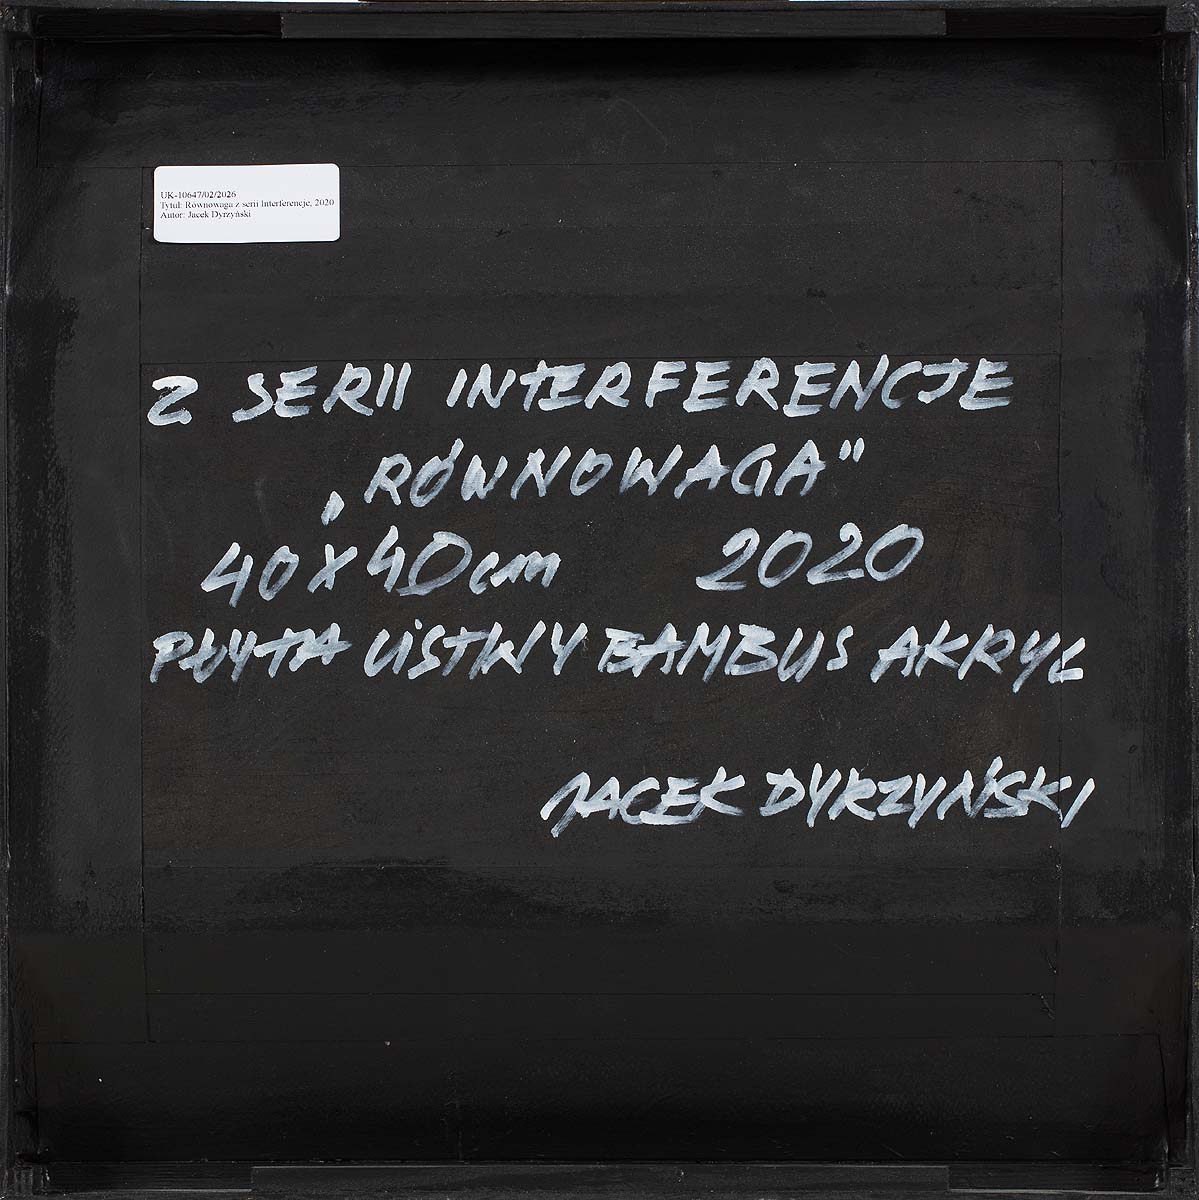 UK-10647/02/2026
Tytuł: Równowaga z serii Interferencje, 2020
Autor: Jacek Dyrzyński
Z SERII INTERFERENCJE
„RÓWNOWAGA”
40 x 40 cm 2020
PŁYTA LISTWY BAMBUS AKRYL
JACEK DYRZYŃSKI